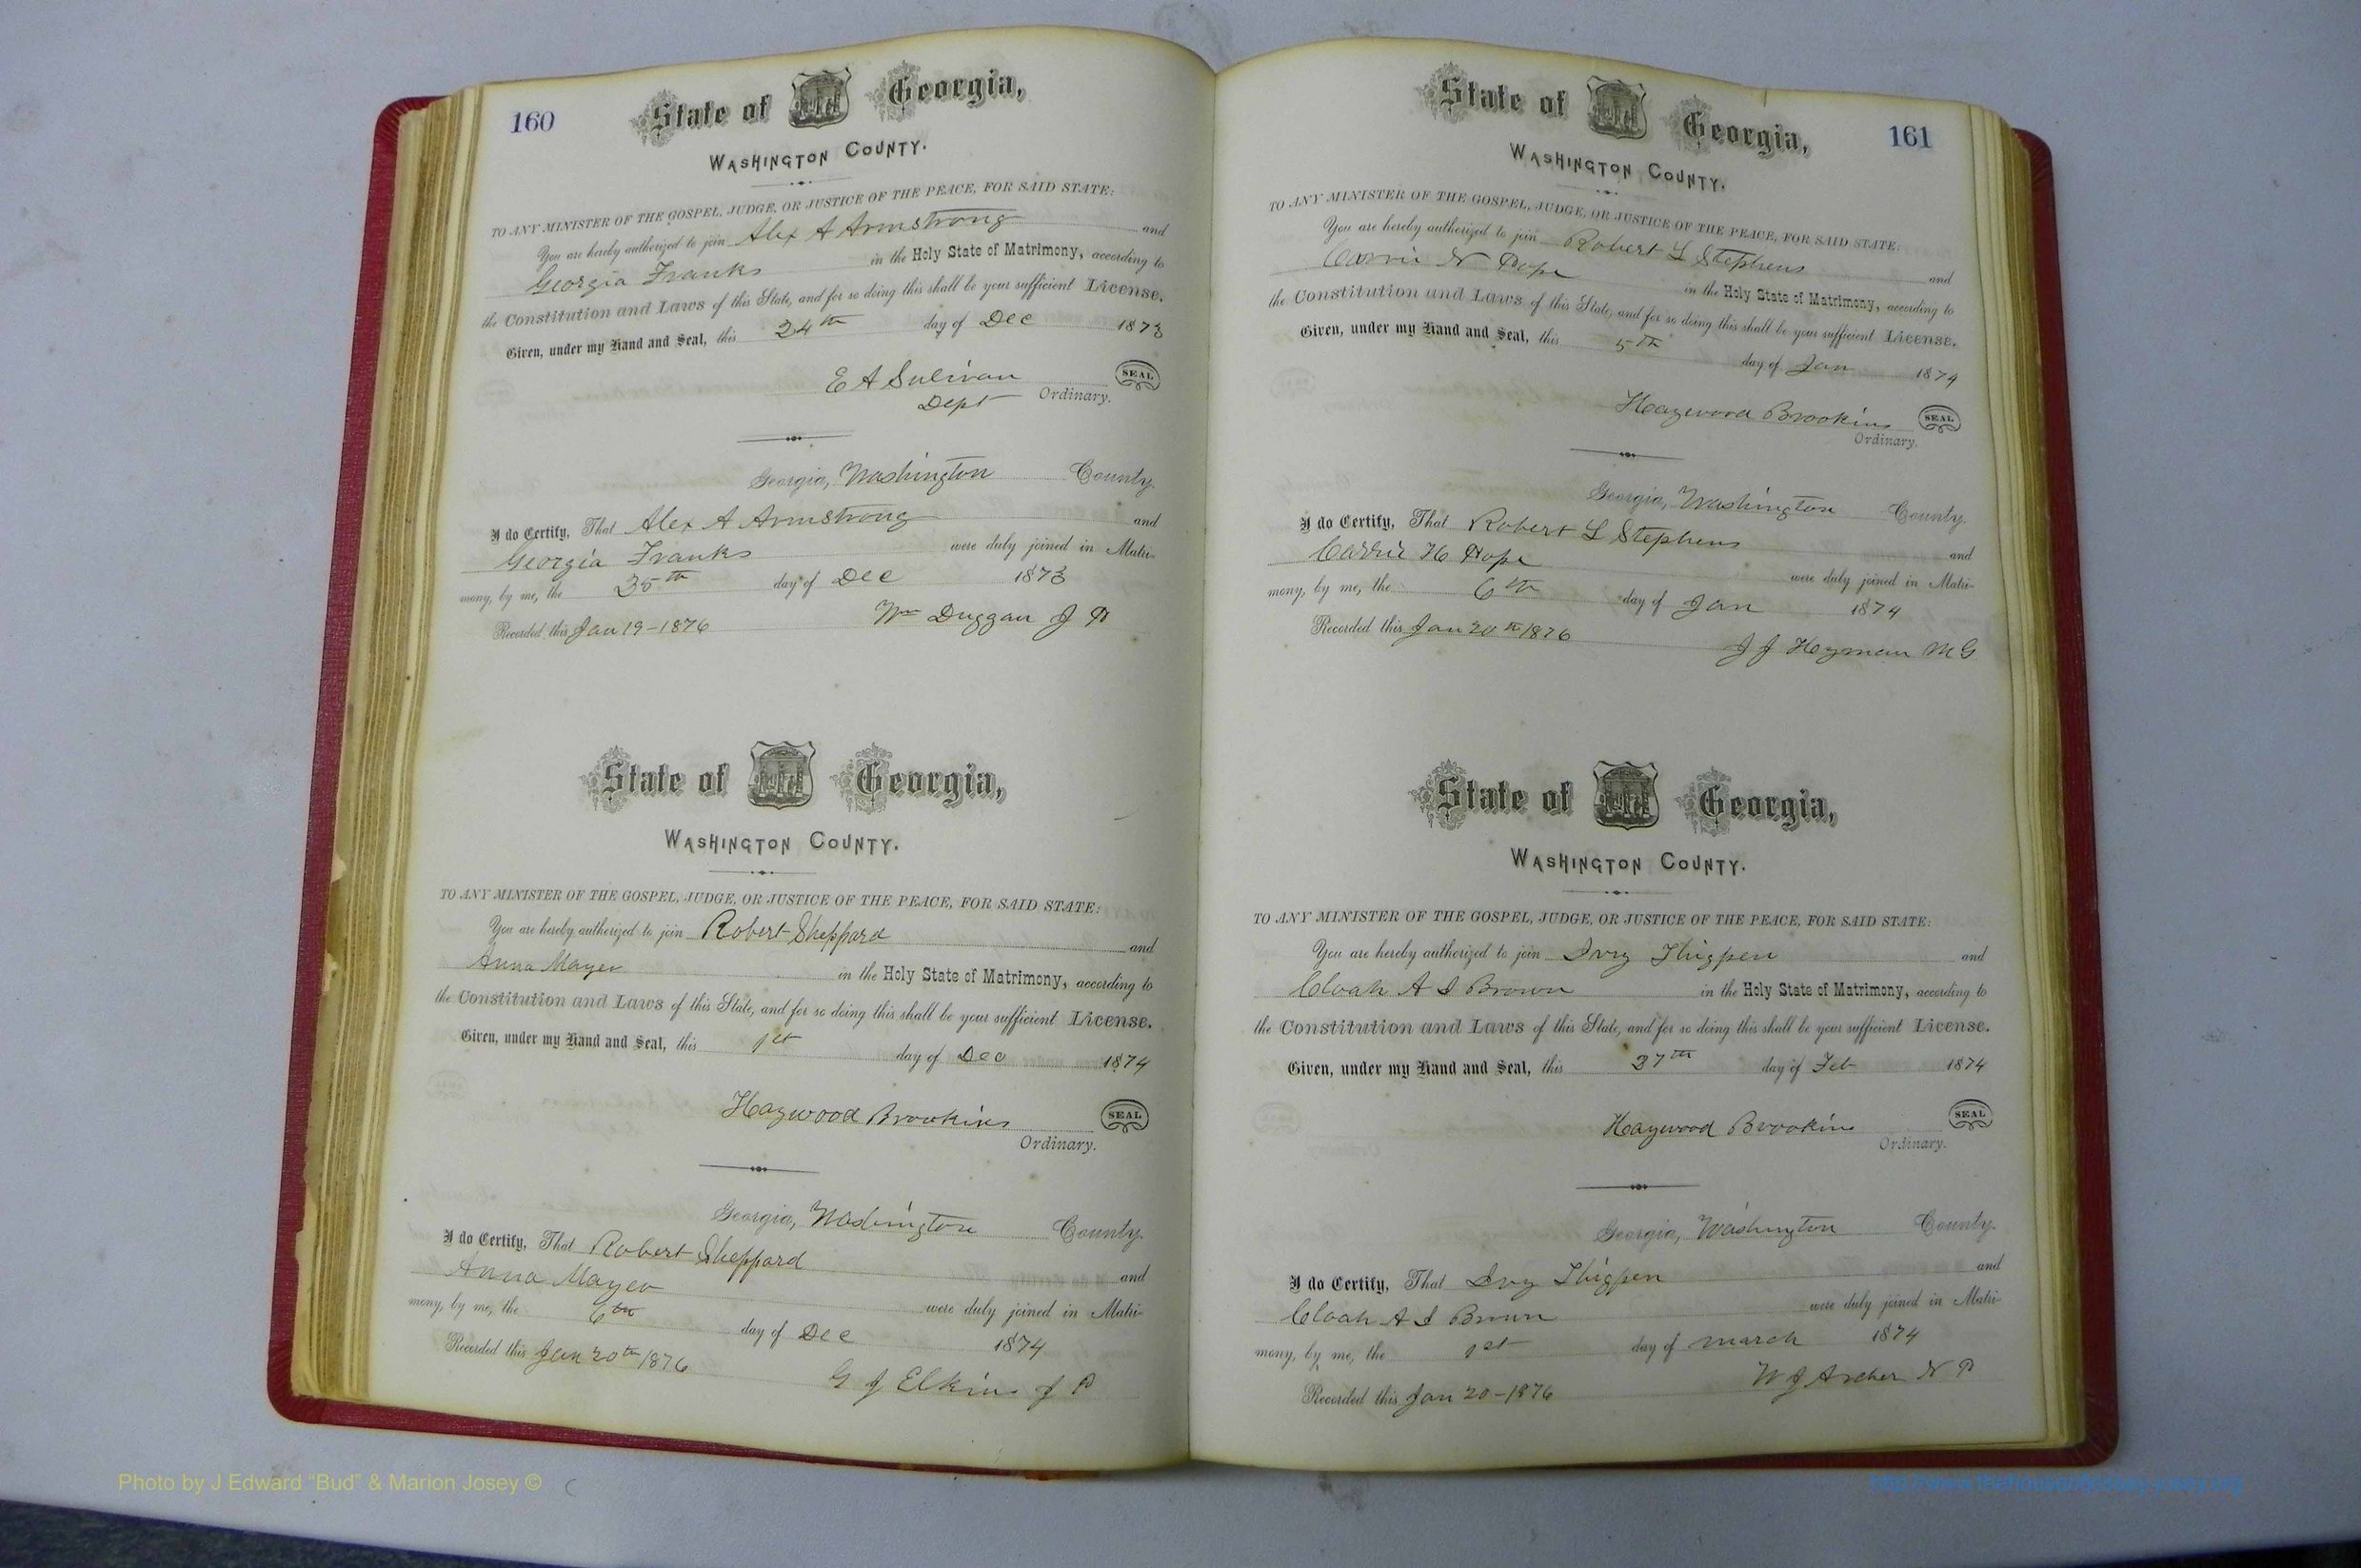 160
State of Georgia,
WASHINGTON COUNTY.
TO ANY MINISTER OF THE GOSPEL, JUDGE, OR JUSTICE OF THE PEACE, FOR SAID STATE:
You are hereby authorized to join Alex A Armstrong and
Georgia Franks in the Holy State of Matrimony, according to
the Constitution and Laws of this State, and for so doing this shall be your sufficient License.
Given, under my Hand and Seal, this 24th day of Dec 1873
E A Sulivan SEAL
Dept Ordinary.
Georgia, Washington County.
I do Certify, That Alex A Armstrong and
Georgia Franks were duly joined in Matri-
mony, by me, the 25th day of Dec 1873
Recorded this Jan 19-1876 Wm Duggan J P
State of Georgia,
WASHINGTON COUNTY.
TO ANY MINISTER OF THE GOSPEL, JUDGE, OR JUSTICE OF THE PEACE, FOR SAID STATE:
You are hereby authorized to join Robert Sheppard and
Anna Mayer in the Holy State of Matrimony, according to
the Constitution and Laws of this State, and for so doing this shall be your sufficient License.
Given, under my Hand and Seal, this 1st day of Dec 1874
Haywood Brookins SEAL
Ordinary.
Georgia, Washington County.
I do Certify, That Robert Sheppard and
Anna Mayer were duly joined in Matri-
mony, by me, the 6th day of Dec 1874
Recorded this Jan 20th 1876 G J Elkins J P
161
State of Georgia,
WASHINGTON COUNTY.
TO ANY MINISTER OF THE GOSPEL, JUDGE, OR JUSTICE OF THE PEACE, FOR SAID STATE:
You are hereby authorized to join Robert L Stephens and
Carrie H Pope in the Holy State of Matrimony, according to
the Constitution and Laws of this State, and for so doing this shall be your sufficient License.
Given, under my Hand and Seal, this 5th day of Jan 1874
Haywood Brookins SEAL
Ordinary.
Georgia, Washington County.
I do Certify, That Robert L Stephens and
Carrie H Pope were duly joined in Matri-
mony, by me, the 6th day of Jan 1874
Recorded this Jan 20th 1876 J J Hyman M G
State of Georgia,
WASHINGTON COUNTY.
TO ANY MINISTER OF THE GOSPEL, JUDGE, OR JUSTICE OF THE PEACE, FOR SAID STATE:
You are hereby authorized to join Ivy Thigpen and
Cloah A I Brown in the Holy State of Matrimony, according to
the Constitution and Laws of this State, and for so doing this shall be your sufficient License.
Given, under my Hand and Seal, this 27th day of Feb 1874
Haywood Brookins SEAL
Ordinary.
Georgia, Washington County.
I do Certify, That Ivy Thigpen and
Cloah A I Brown were duly joined in Matri-
mony, by me, the 1st day of March 1874
Recorded this Jan 20-1876 W J Archer N P
Photo by J Edward “Bud” & Marion Josey ©